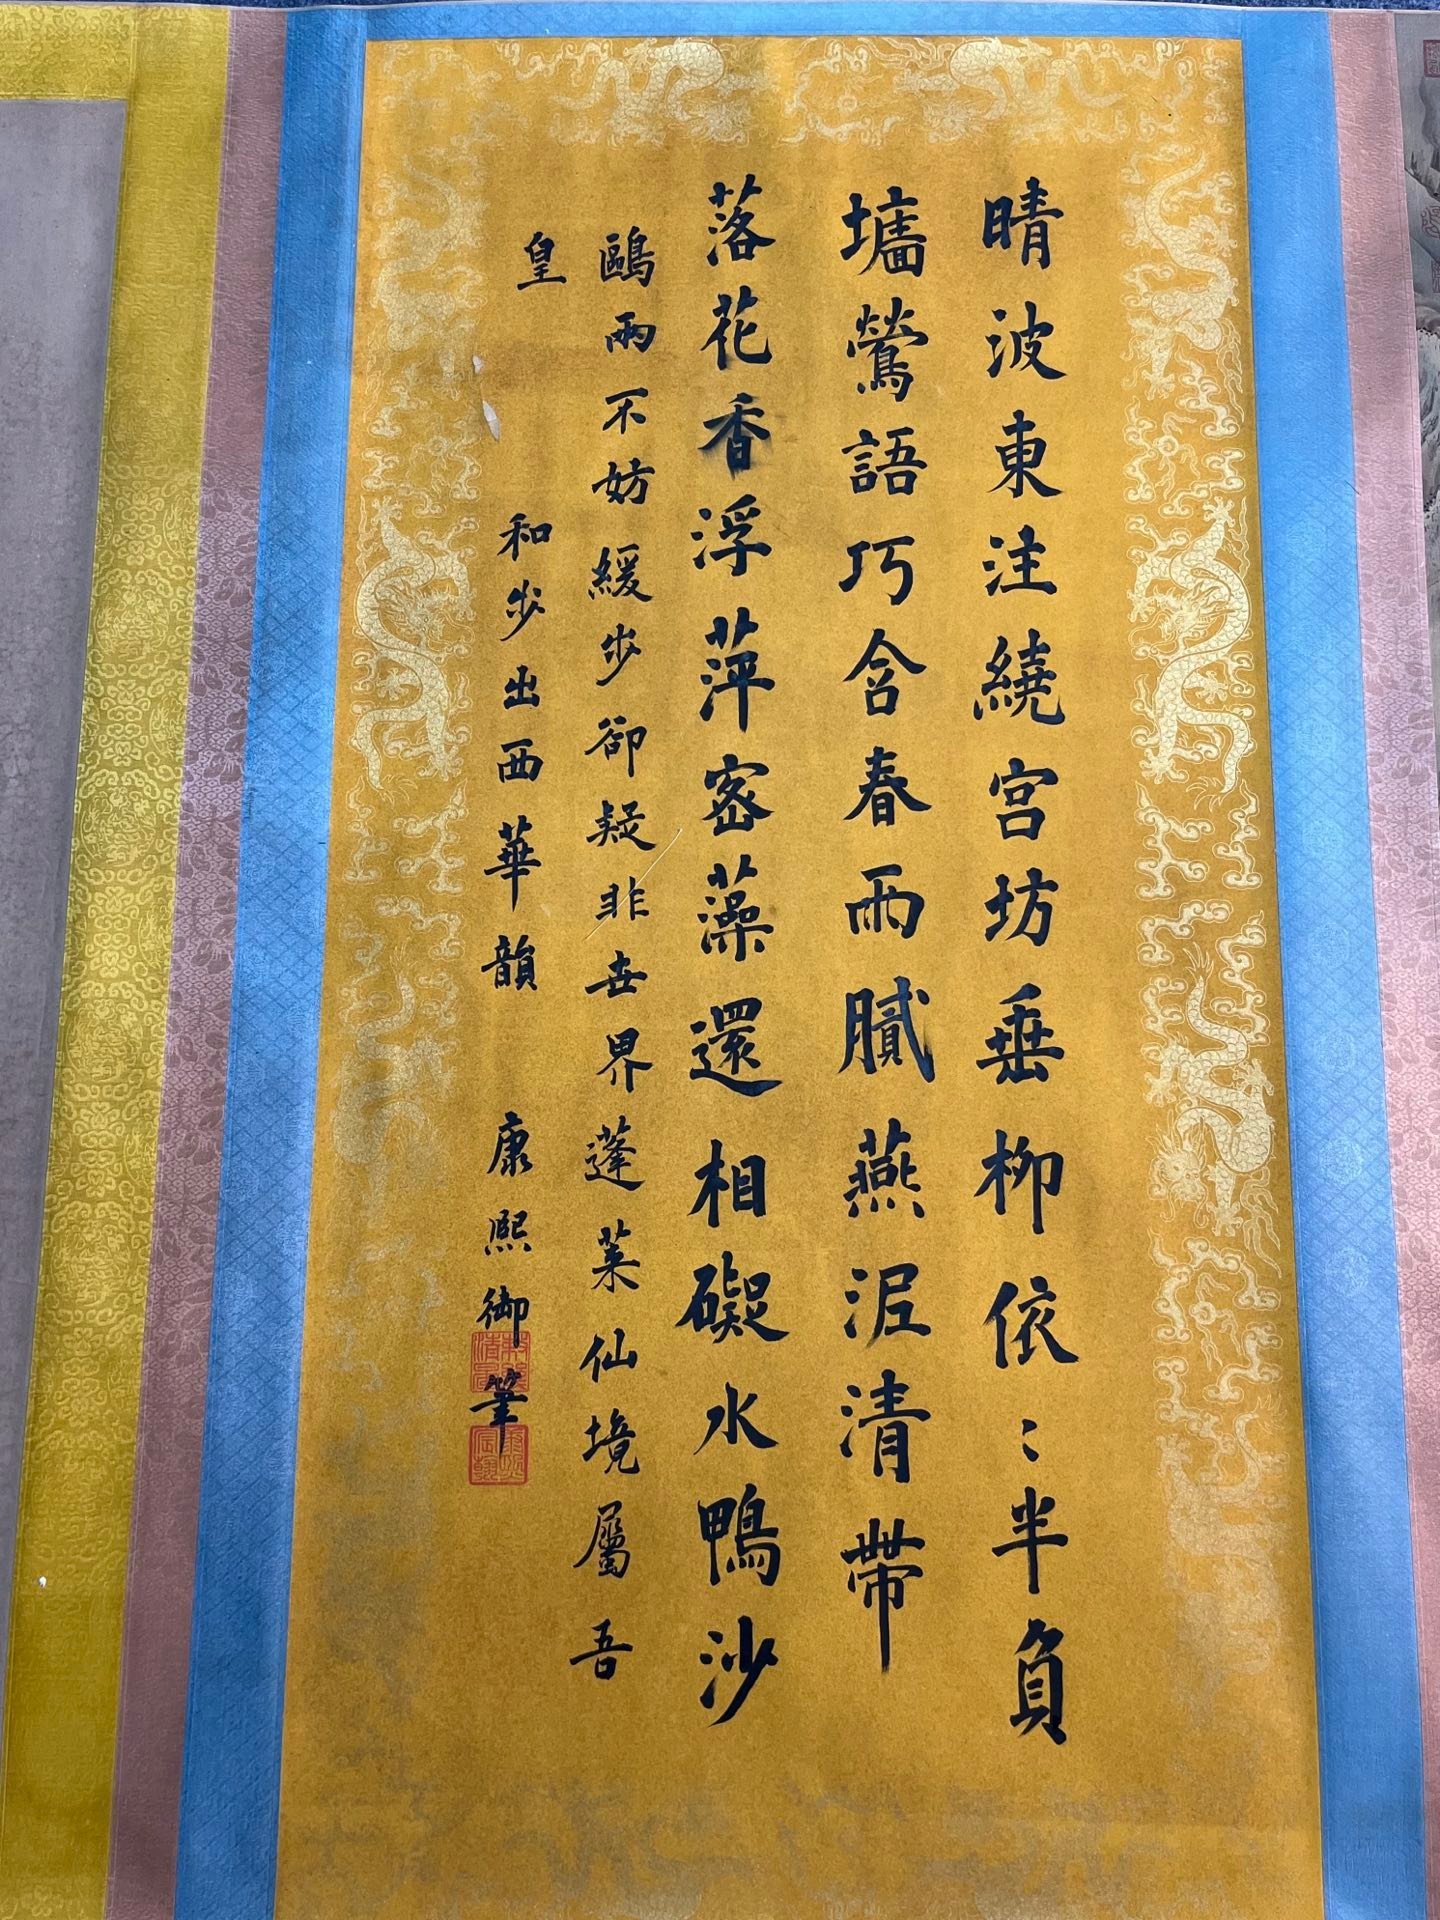 晴波東注繞宮坊垂柳依〻半負
墻鶯語巧含春雨膩燕泥清帶
落花香浮萍密藻還相礙水鴨沙
鷗兩不妨緩步卻疑非世界蓬萊仙境屬吾
皇
和步出西華韻 康熙御筆